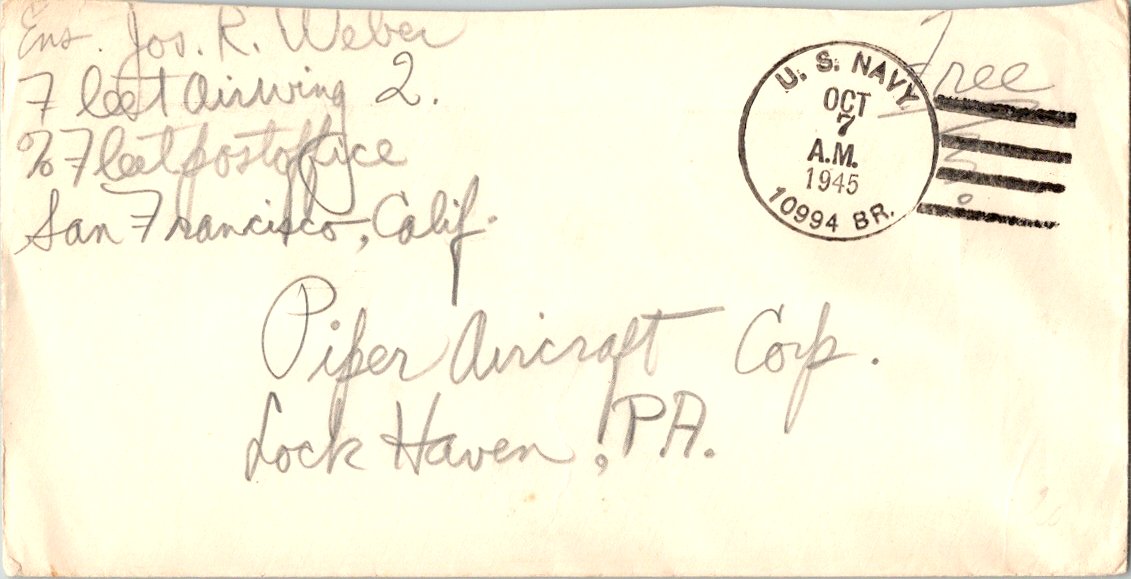 Ens. Jos. R. Weber
Fleet Airwing 2.
℅ Fleet post office
San Francisco, Calif.
Free
U. S. NAVY.
OCT
7
A.M.
1945
10994 BR.
Piper Aircraft Corp.
Lock Haven, PA.